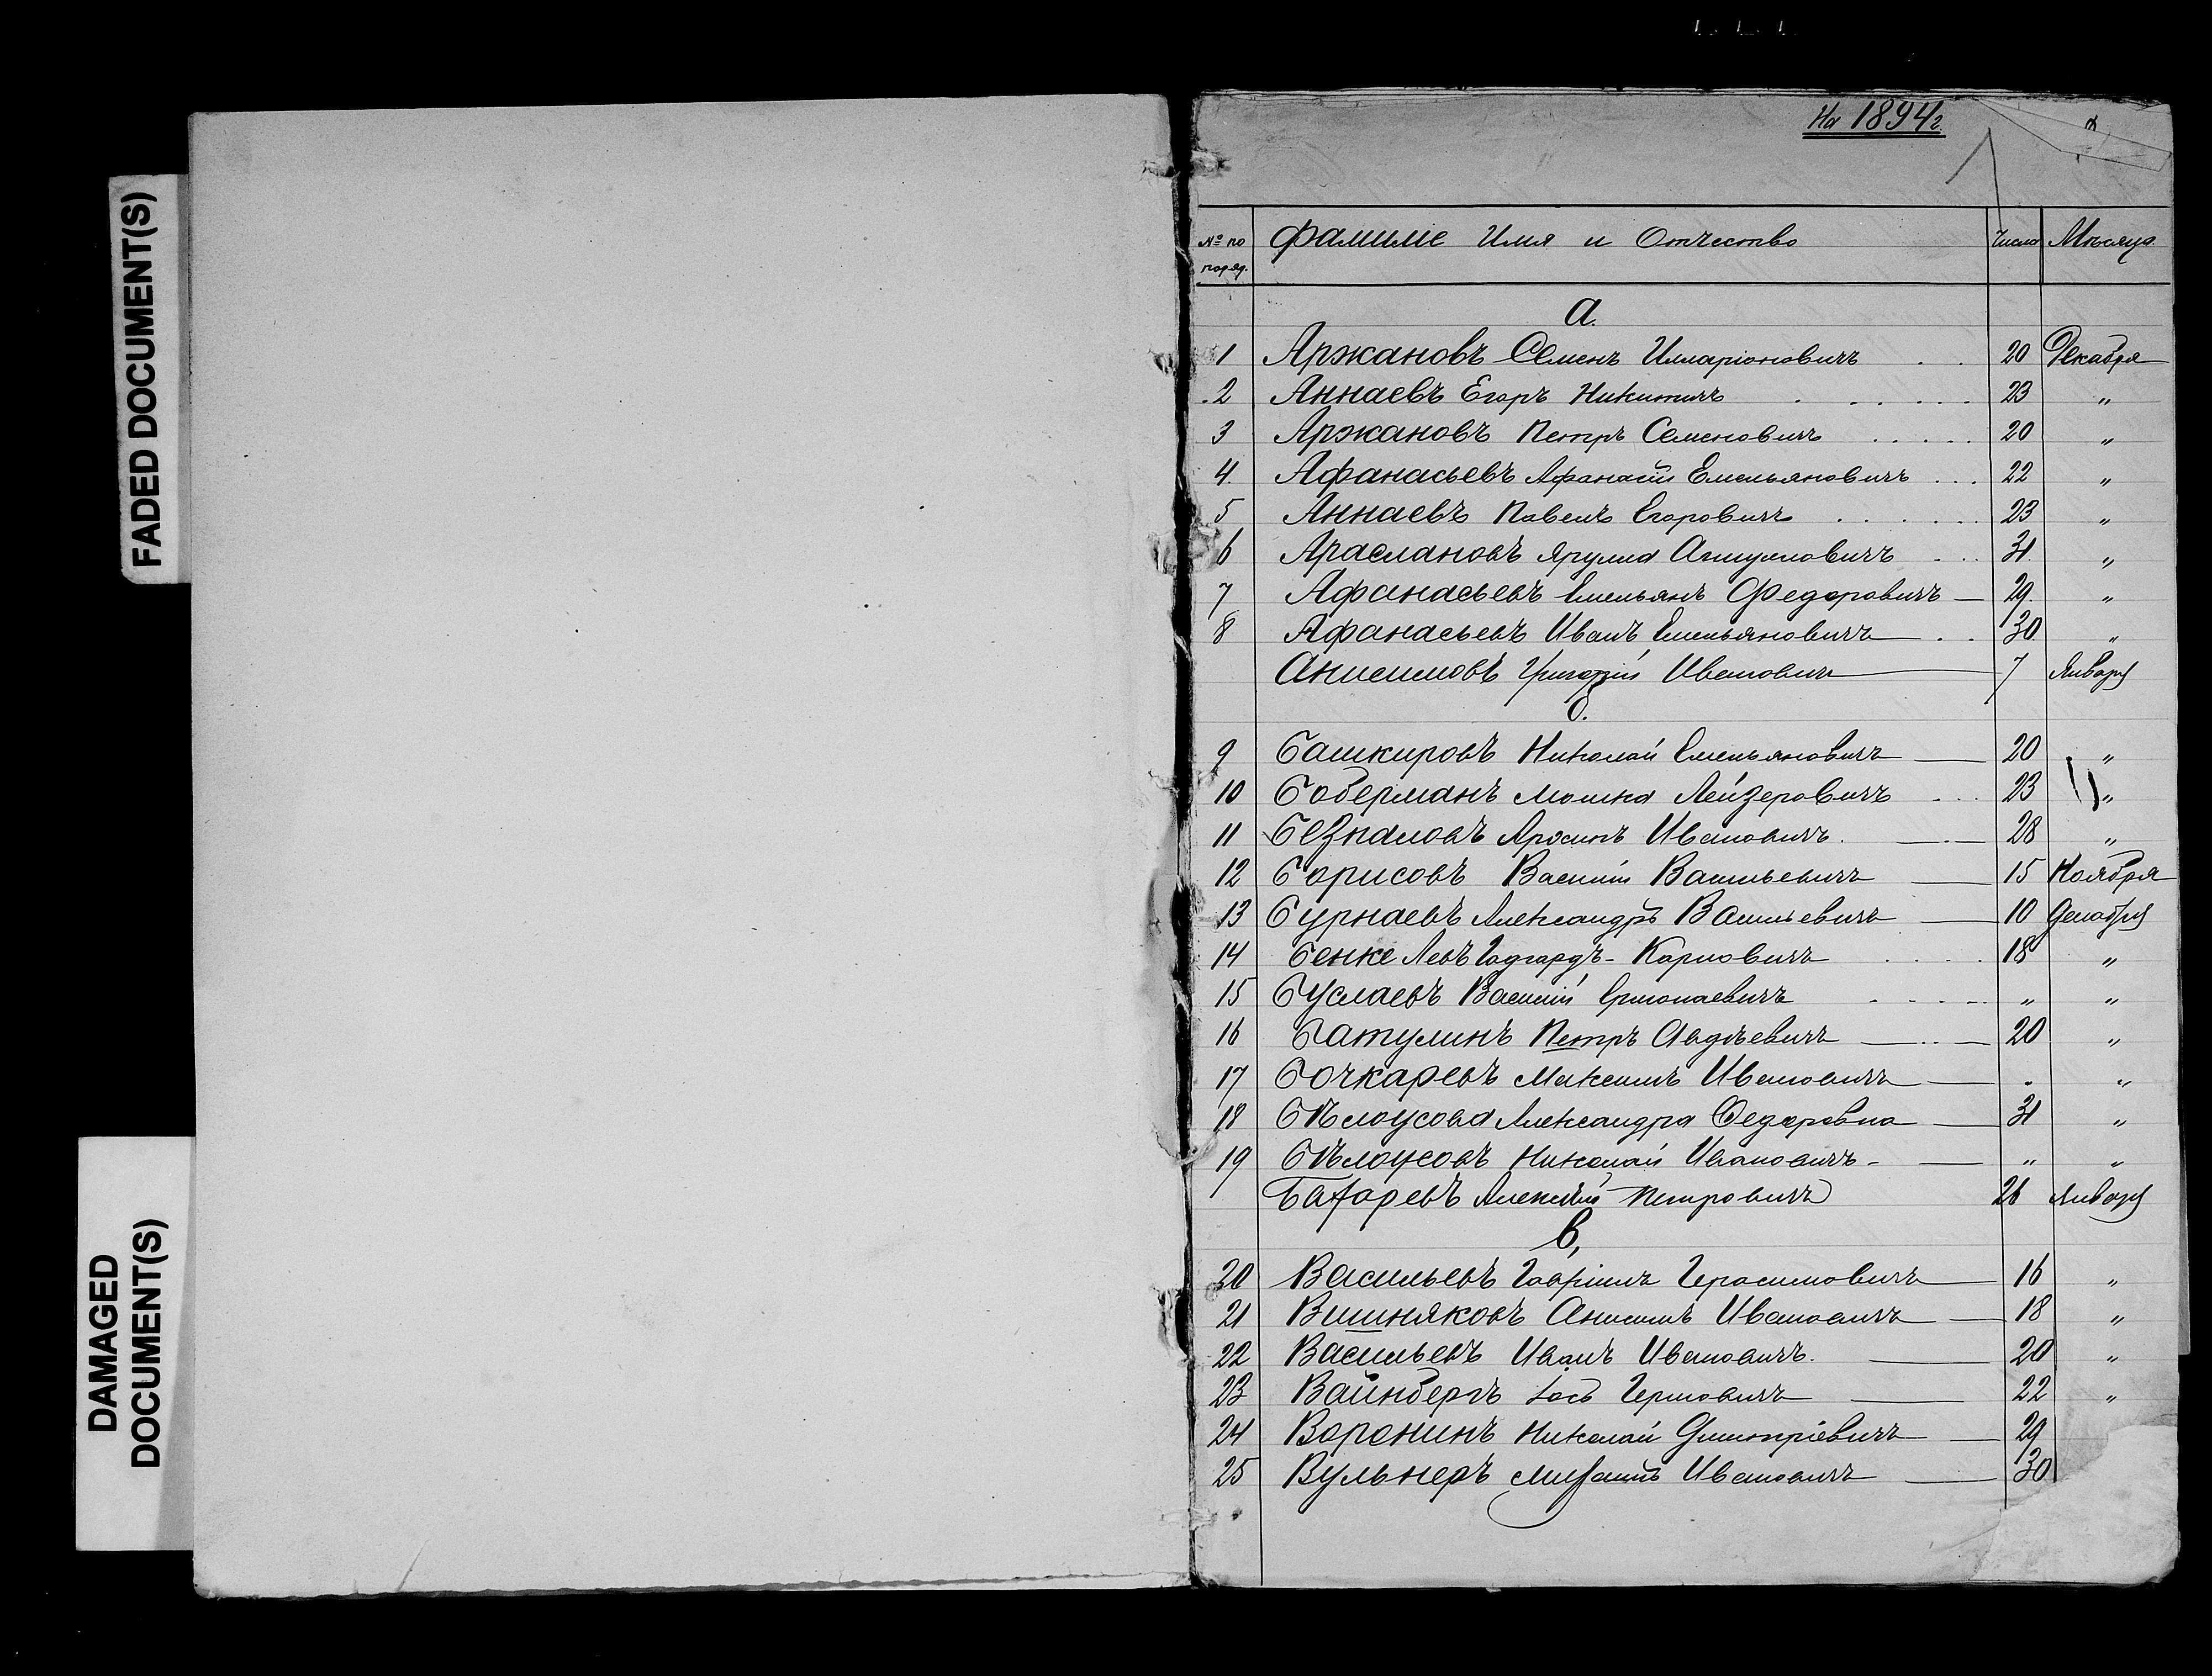 FADED DOCUMENT(S)
DAMAGED
DOCUMENT(S)
На 1894 г.
№ по поряд. Фамиліе Имя и Отчество Число Мѣсяца
а.
1 Аржановъ Семенъ Илларіоновичъ 20 Декабря
2 Аннаевъ Егоръ Никитичъ 23 "
3 Аржановъ Петръ Семеновичъ 20 "
4. Афанасьевъ Афанасій Емельяновичъ 22 "
5 Аннаевъ Павелъ Егоровичъ 23 "
6 Араслановъ 31 "
7 Афанасьевъ Емельянъ Федоровичъ 29 "
8 Афанасьевъ Иванъ Емельяновичъ 30 "
Анисимовъ Григорій Ивановичъ 7 Январ
б.
9 Башкировъ Николай Емельяновичъ 20 "
10 Боберманъ Мошка Лейзеровичъ 23 "
11 Ивановичъ. 28 "
12 Борисовъ Василій Васильевичъ 15 Ноября
13 Бурнаевъ Александръ Васильевичъ 10 Декабр
14 Бенке Левъ Карловичъ 18 "
15 Буслаевъ Василій Ермолаевичъ " "
16 Батулинъ Петръ Авдѣевичъ 20 "
17 Бочкаревъ Максимъ Ивановичъ " "
18 Бѣлоусова Александра Федоровна 31 "
19 Бѣлоусовъ Николай Ивановичъ " "
Алексѣй Петровичъ 26 Январ
в,
20 Васильевъ Гавріилъ Герасимовичъ 16 "
21 Вишняковъ Анисимъ Ивановичъ 18 "
22 Васильевъ Иванъ Ивановичъ. 20 "
23 Вайнбергъ 22 "
24 Воронинъ Николай Дмитріевичъ 29
25 Вульнеръ Михаилъ Ивановичъ 30